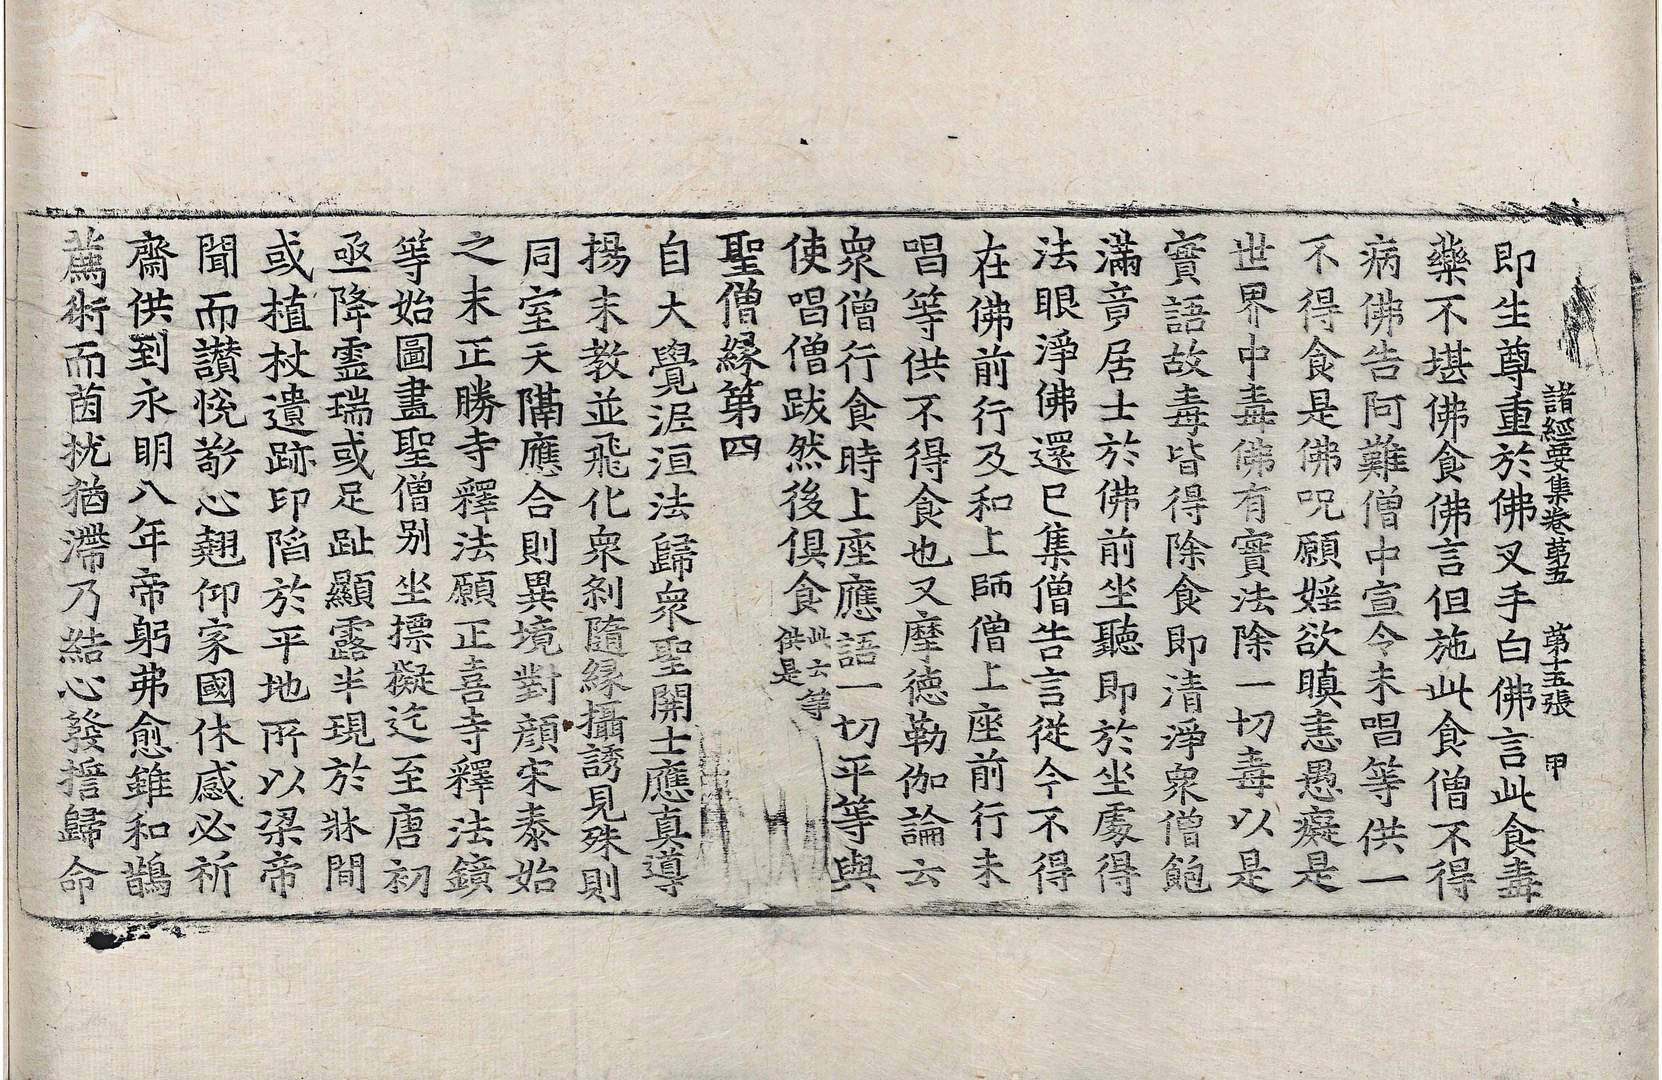 諸經要集卷第五　第十五張　甲
即生尊重於佛叉手白佛言此食毒
藥不堪佛食佛言但施此食僧不得
病佛告阿難僧中宣令未唱等供一
不得食是佛佛呪願婬欲瞋恚愚癡是
世界中毒佛有實法除一切毒以是
實語故毒皆得除食即清淨衆僧飽
滿竟居士於佛前坐聽即於坐處得
法眼淨佛還已集僧告言從今不得
在佛前行及和上師僧上座前行未
唱等供不得食也又摩德勒伽論云
衆僧行食時上座應語一切平等與
使唱僧跋然後俱食此云等供是
聖僧緣第四
自大覺泥洹法歸衆聖開士應真導
揚末教並飛化衆剎隨緣攝誘見殊則
同室天隔應合則異境對顔宋泰始
之末正勝寺釋法願正喜寺釋法鏡
等始圖畫聖僧別坐摽擬迄至唐初
亟降靈瑞或足趾顯露半現於牀間
或植杖遺跡印陷於平地所以梁帝
聞而讃悅敬心翹仰家國休感必祈
齋供到永明八年帝躬弗愈雖和鵲
薦術而茵扰猶滯乃結心發誓歸命